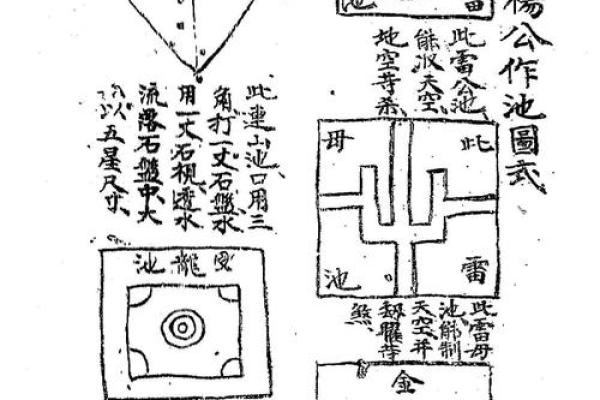 楊公作池圖式
池 雷
此雷公池
能收天空
地空等煞
毋 此
池 雷
此雷毋
池能制
天空并
等
煞
金
此連山池口用三
角打一丈石盤水
用一丈石 透水
流落石盤中大
以五星尺寸
池龍